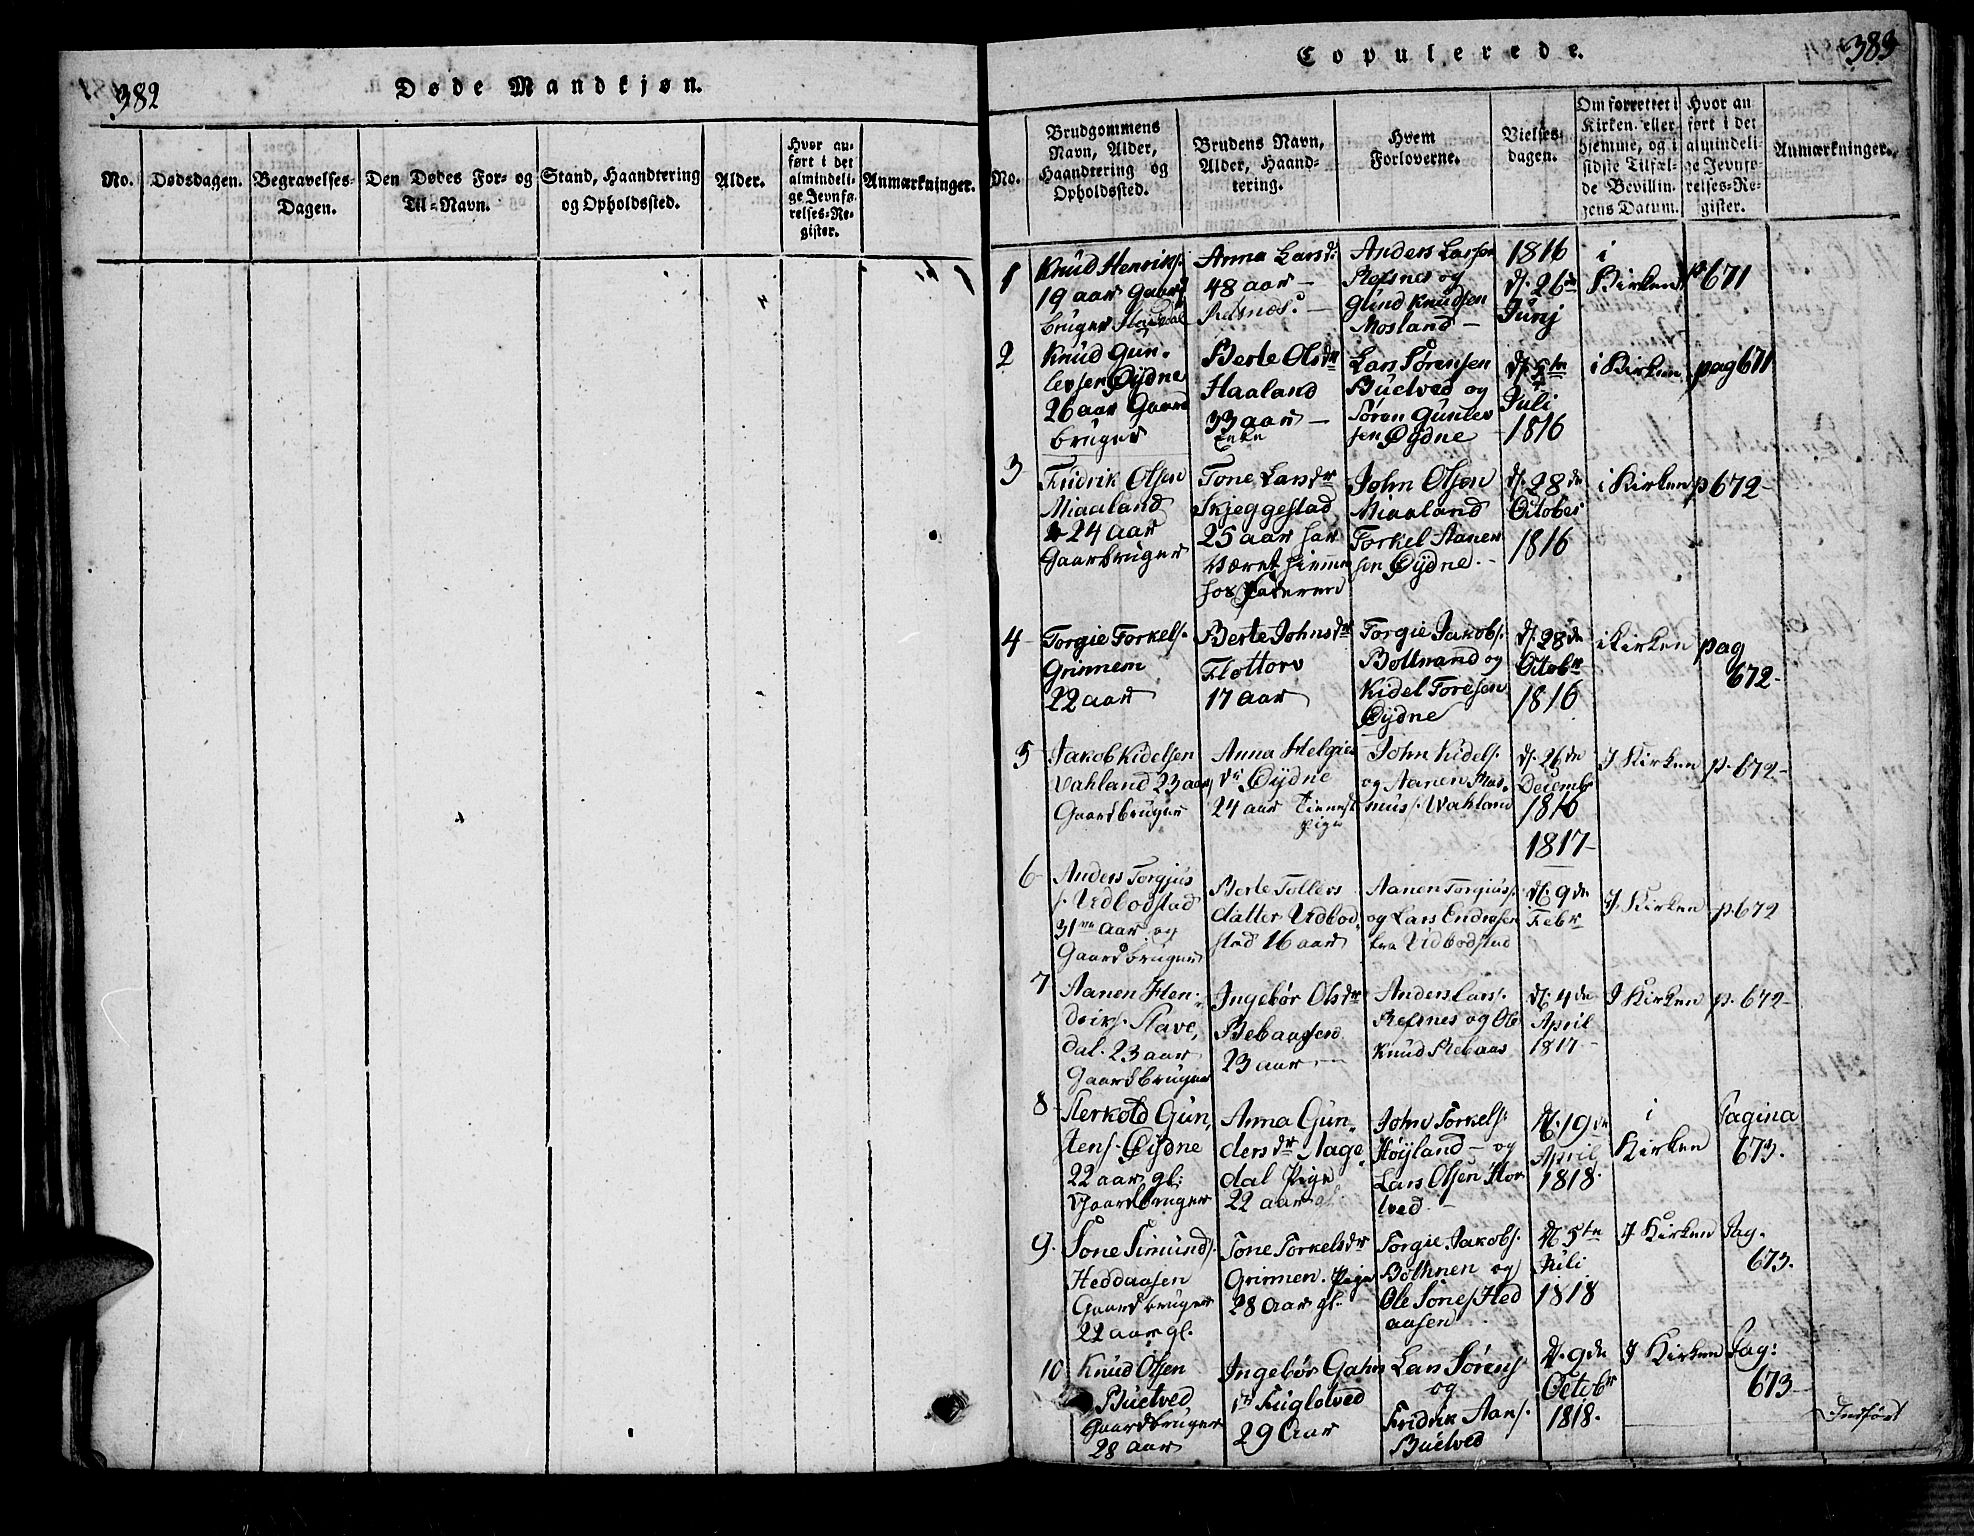 382
Døde Mandkjøn.
No.
Dødsdagen.
Begravelses-
Dagen.
Den Dødes For- og
Til-Navn.
Stand, Haandtering
og Opholdssted.
Alder.
Hvor an-
ført i det
almindeli-
ge Jevnfø-
relses-Re-
gister.
Anmærkninger.
383
Copulerede.
No.
Brudgommens
Navn, Alder,
Haandtering og
Opholdssted.
Brudens Navn,
Alder, Haand-
tering.
Hvem
Forloverne.
Vielses-
dagen.
Om forrettet i
Kirken eller
hjemme, og i
sidste Tilfæl-
de Bevillin-
gens Datum.
Hvor an
ført i det
almindeli-
ge Jevnfø-
relses-Re-
gister.
Anmærkninger.
1
Knud Henriks.
19 aar Gaard
bruger
Anna Larsd.
48 aar –
Refsnes. –
Anders Larsen
Refsnes og
Gund Knudsen
Mosland –
1816
d. 26de
Junj
i
Kirken
p 671
2
Knud Gun-
levsen Øydne
26 aar Gaard
bruger
Berte Olsdr
Haaland
33 aar –
Enke
Lars Sørensen
Buetved og
Søren Gunlev
sen Øydne
d. 5te
Juli
1816
i Kirken
pag 671
3
Fridrik Olsen
Miaaland
24 aar
Gaardbruger
Tone Larsdr
Skjeggestad
25 aar har
været hiemme
hos Faderen
John Olsen
Miaaland
Torkel Aanen
sen Øydne. –
d. 28de
October
1816
i Kirken
p 672–
4
Torgie Torkels.
Grimem
22 aar
Berte Johnsdr
Flottorv
17 aar
Torgie Jakobs.
og
Kidel Toresen
Øydne
d. 28de
Octobr
1816
i Kirken
pag
672–
5
Jakob Kidelsen
Vahland 23 aar
Gaardbruger
Anna Helgies
dr Øydne
24 aar tieneste
Pige
John Kidels.
og Aanen Ras-
mus. Vahland
d. 26de
Decembr
1816
I Kirken
p. 672–
1817–
6
Anders Torgjus
s. Vidbodstad
31 aar og
Gaardbruger
Berte Tollevs
datter Vidbod
stad 16 aar
Aanen Torgius.
og Lars Endresen
fra Vidbodstad
d. 9de
Febr
I Kirken
p. 672
7
Aanen Hen-
driks. Stave,
dal. 23 aar
Gaardbruger
Ingebør Olsdr
Rebaasen
23 aar –
Anders Lars.
Refsnes og Ole
Knud Rebaas
d. 4de
April
1817–
I Kirken
p. 672–
8
Sterkold Gun,
stens. Øydne
22 aar gl:
Gaardbruger
Anna Gun-
dersdr Aage
dal Pige
22 aar gl.
John Torkels.
Høyland – og
Lars Olsen Stor
tved –
d. 19de
April
1818.
i
Kirken
Pagina
673.
9.
Tone Simunds.
Heddaasen
Gaardbruger
22 aar gl.
Tone Torkelsdr
Grimen. Pige
28 Aar gl.
Torgie Jakobs.
og
Ole Tones. Hed
aasen
d. 5te
Juli
1818
I Kirken
Pag.
673.
10
Knud Olsen
Buetved
Gaardbruger
28 aar
Ingebør
Fuglestved
29 Aar
Lars Sørens.
og
Fridrik Aans.
Buetved
d. 9de
Octobr
1818.
I Kirken
Pag:
673–
Indført